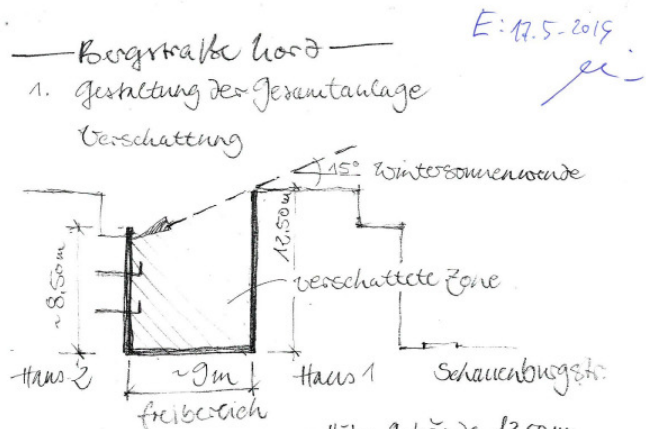 E: 17.5-2019
Bergstraße Nord
1. Gestaltung der Gesamtanlage
Verschattung
15° Wintersonnenwende
12.50m
~8,50m
verschattete Zone
Haus 2
~9m
Haus 1
Schauenburgstr.
freibereich
12.50m